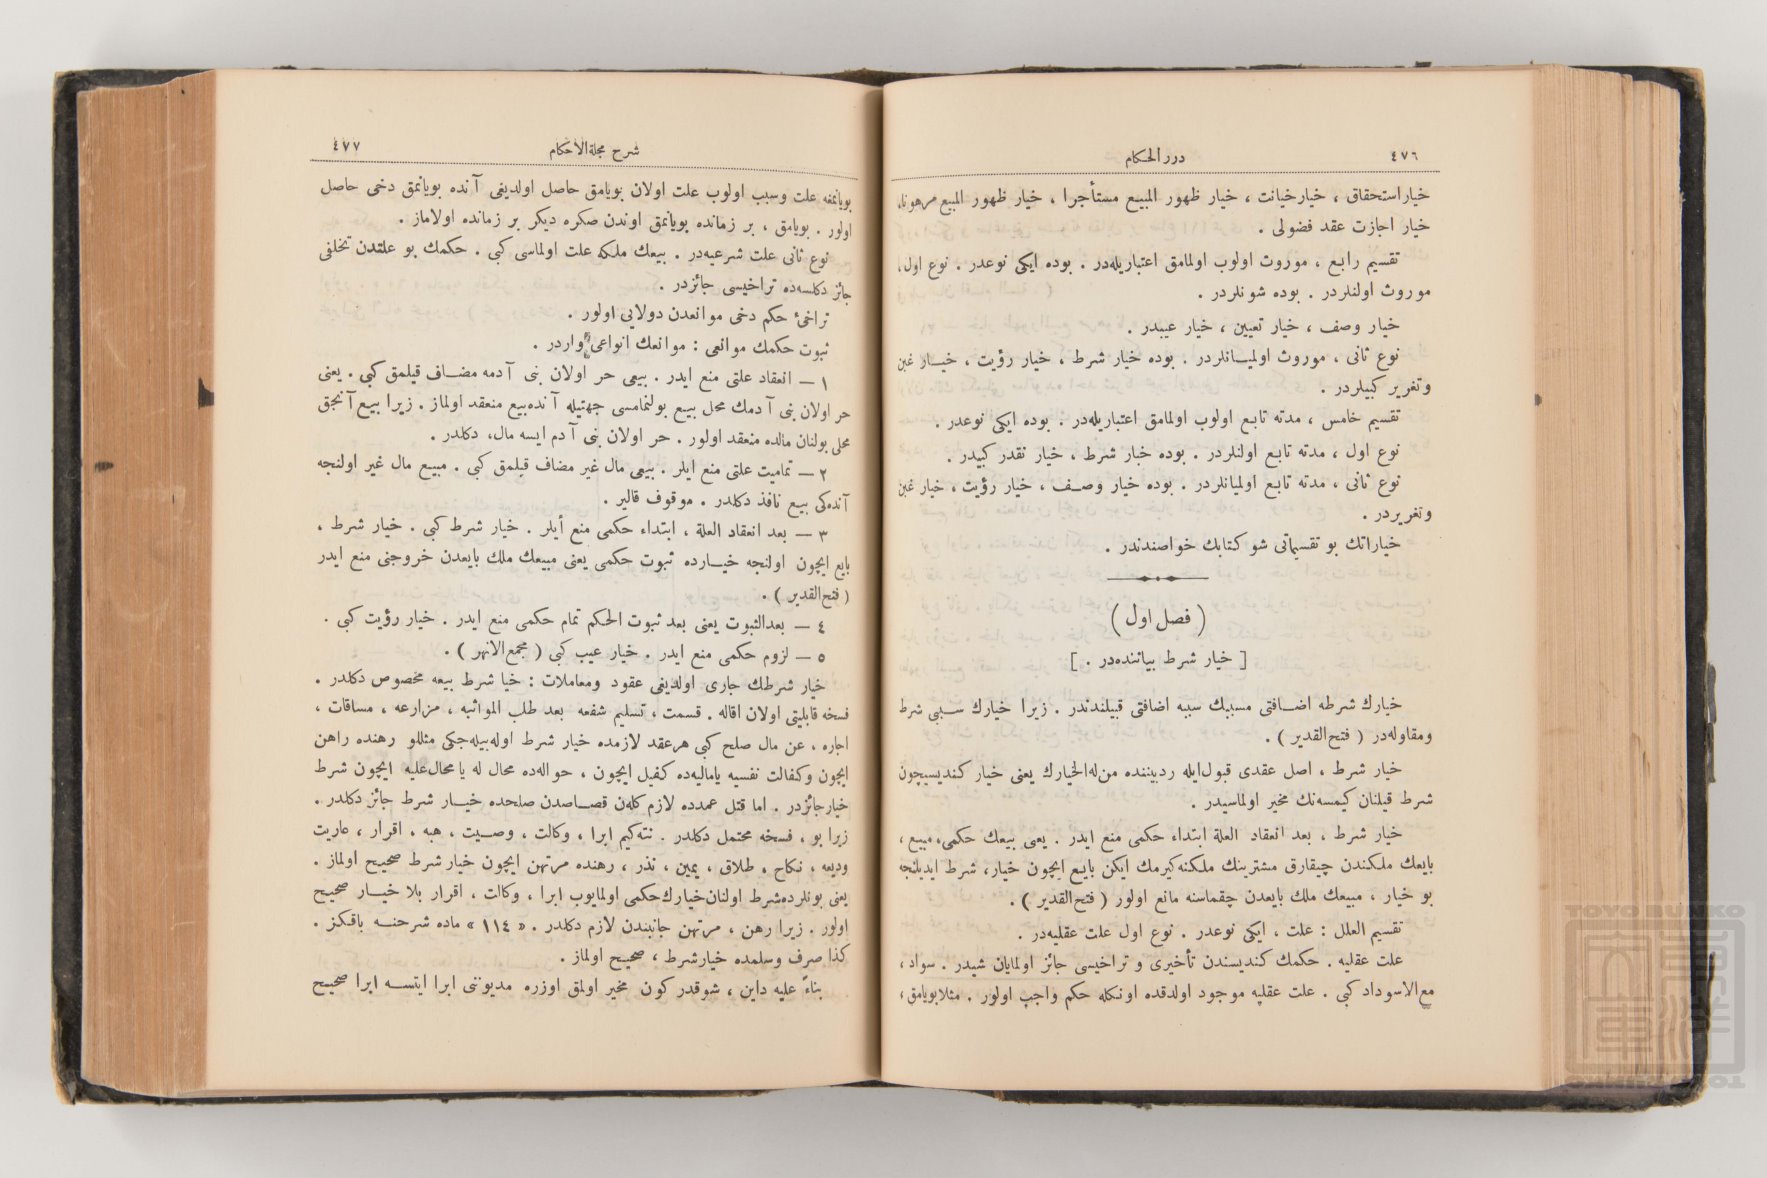 ٤٧٦
درر الحكام
خيار استحقاق ، خيار خيانت ، خيار ظهور المبيع مستأجرا ، خيار ظهور المبيع مرهونا،
خيار اجازت عقد فضولى .
تقسيم رابع ، موروث اولوب اولمامق اعتباريله‌در . بوده ايكى نوعدر . نوع اول،
موروث اولنلردر . بوده شونلردر .
خيار وصف ، خيار تعيين ، خيار عيبدر .
نوع ثانى ، موروث اولميانلردر . بوده خيار شرط ، خيار رؤيت ، خيار غبن
وتغرير كبيلردر .
تقسيم خامس ، مدته تابع اولوب اولمامق اعتباريله‌در . بوده ايكى نوعدر .
نوع اول ، مدته تابع اولنلردر . بوده خيار شرط ، خيار نقدر كبيدر .
نوع ثانى ، مدته تابع اولميانلردر . بوده خيار وصف ، خيار رؤيت ، خيار غبن
وتغريردر .
خياراتك بو تقسيماتى شو كتابك خواصندندر .
( فصل اول )
[ خيار شرط بياننده‌در . ]
خيارك شرطه اضافتى مسببك سببه اضافتى قبيلندندر . زيرا خيارك سببى شرط
ومقاوله‌در ( فتح‌القدير ) .
خيار شرط ، اصل عقدى قبول‌ايله ردبيننده من‌له‌الخيارك يعنى خيار كنديسيچون
شرط قيلنان كيمسه‌نك مخير اولماسيدر .
خيار شرط ، بعد انعقاد العلة ابتداء حكمى منع ايدر . يعنى بيعك حكمى، مبيع ،
بايعك ملكندن چيقارق مشترينك ملكنه‌كيرمك ايكن بايع ايچون خيار، شرط ايديلنجه
بو خيار ، مبيعك ملك بايعدن چقماسنه مانع اولور ( فتح‌القدير ) .
تقسيم العلل : علت ، ايكى نوعدر . نوع اول علت عقليه‌در .
علت عقليه . حكمك كنديسندن تأخيرى و تراخيسى جائز اولمايان شيدر . سواد ،
مع‌الاسوداد كبى . علت عقليه موجود اولدقده اونكله حكم واجب اولور . مثلابويامق،
شرح مجلة‌الاحكام
٤٧٧
بويانمغه علت وسبب اولوب علت اولان بويامق حاصل اولديغى آنده بويانمق دخى حاصل
اولور . بويامق ، بر زمانده بويانمق اوندن صكره ديكر بر زمانده اولاماز .
نوع ثانى علت شرعيه‌در . بيعك ملكه علت اولماسى كبى . حكمك بو علتدن تخلفى
جائز دكلسه‌ده تراخيسى جائزدر .
تراخئ حكم دخى موانعدن دولايى اولور .
ثبوت حكمك موانعى : موانعك انواعى واردر .
١ — انعقاد علتى منع ايدر . بيعى حر اولان بنى آدمه مضاف قيلمق كبى . يعنى
حر اولان بنى آدمك محل بيع بولنمامسى جهتيله آنده‌بيع منعقد اولماز . زيرا بيع آنجق
محلى بولنان مالده منعقد اولور . حر اولان بنى آدم ايسه مال، دكلدر .
٢ — تماميت علتى منع ايلر . بيعى مال غير مضاف قيلمق كبى . مبيع مال غير اولنجه
آنده‌كى بيع نافذ دكلدر . موقوف قالير .
٣ — بعد انعقاد العلة ، ابتداء حكمى منع أيلر . خيار شرط كبى . خيار شرط ،
بايع ايچون اولنجه خيارده ثبوت حكمى يعنى مبيعك ملك بايعدن خروجنى منع ايدر
( فتح‌القدير ) .
٤ — بعدالثبوت يعنى بعد ثبوت الحكم تمام حكمى منع ايدر . خيار رؤيت كبى .
٥ — لزوم حكمى منع ايدر . خيار عيب كبى ( مجمع‌الانهر ) .
خيار شرطك جارى اولديغى عقود ومعاملات : خيا شرط بيعه مخصوص دكلدر .
فسخه قابليتى اولان اقاله . قسمت ، تسليم شفعه بعد طلب المواثبه ، مزارعه ، مساقات ،
اجاره ، عن مال صلح كبى هرعقد لازمده خيار شرط اوله‌بيله‌جكى مثللو رهنده راهن
ايچون وكفالت نفسيه ياماليه‌ده كفيل ايچون ، حواله‌ده محال له يا محال‌عليه ايچون شرط
خيارجائزدر . اما قتل عمدده لازم كلەن قصاصدن صلحده خيار شرط جائز دكلدر .
زيرا بو ، فسخه محتمل دكلدر . نته‌كيم ابرا ، وكالت ، وصيت ، هبه ، اقرار ، عاريت
وديعه ، نكاح ، طلاق ، يمين ، نذر ، رهنده مرتهن ايچون خيار شرط صحيح اولماز .
يعنى بونلرده‌شرط اولنان‌خيارك‌حكمى اولمايوب ابرا ، وكالت ، اقرار بلا خيار صحيح
اولور . زيرا رهن ، مرتهن جانبندن لازم دكلدر . « ١١٤ » ماده شرحنه باقكز .
كذا صرف وسلمده خيارشرط ، صحيح اولماز .
بناءً عليه داين ، شوقدر كون مخير اولمق اوزره مديوننى ابرا ايتسه ابرا صحيح
TOYO BUNKO